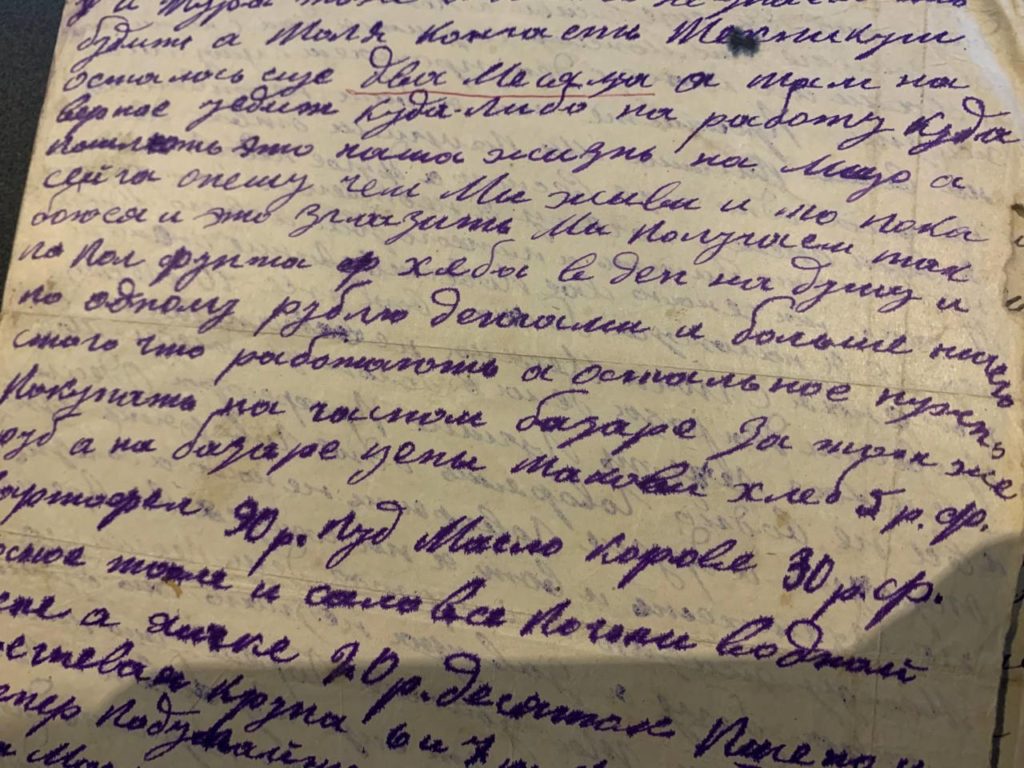 будит а Толя кончаеть Техникум
осталось еще два Месяца а там на
верное уедит куда-либо на работу куда
пошлють это наша жизнь на лицо а
сейча опешу чем Мы живи и то пока
боюся и это зглазить Мы получаем так
по пол фунта ф хлеба в ден на душу и
по одному рублю денгами и больше ничего
стого что работають а остальное нужно
Покупать на часном базаре За теи же
руб а на базаре цены такови хлеб 5 р. ф.
картофел 90 р. пуд Масло корове 30 р. ф.
осное тоже и сало вся почти водной
а яички 20 р. десяток Пшено и
крупа 6 и 7